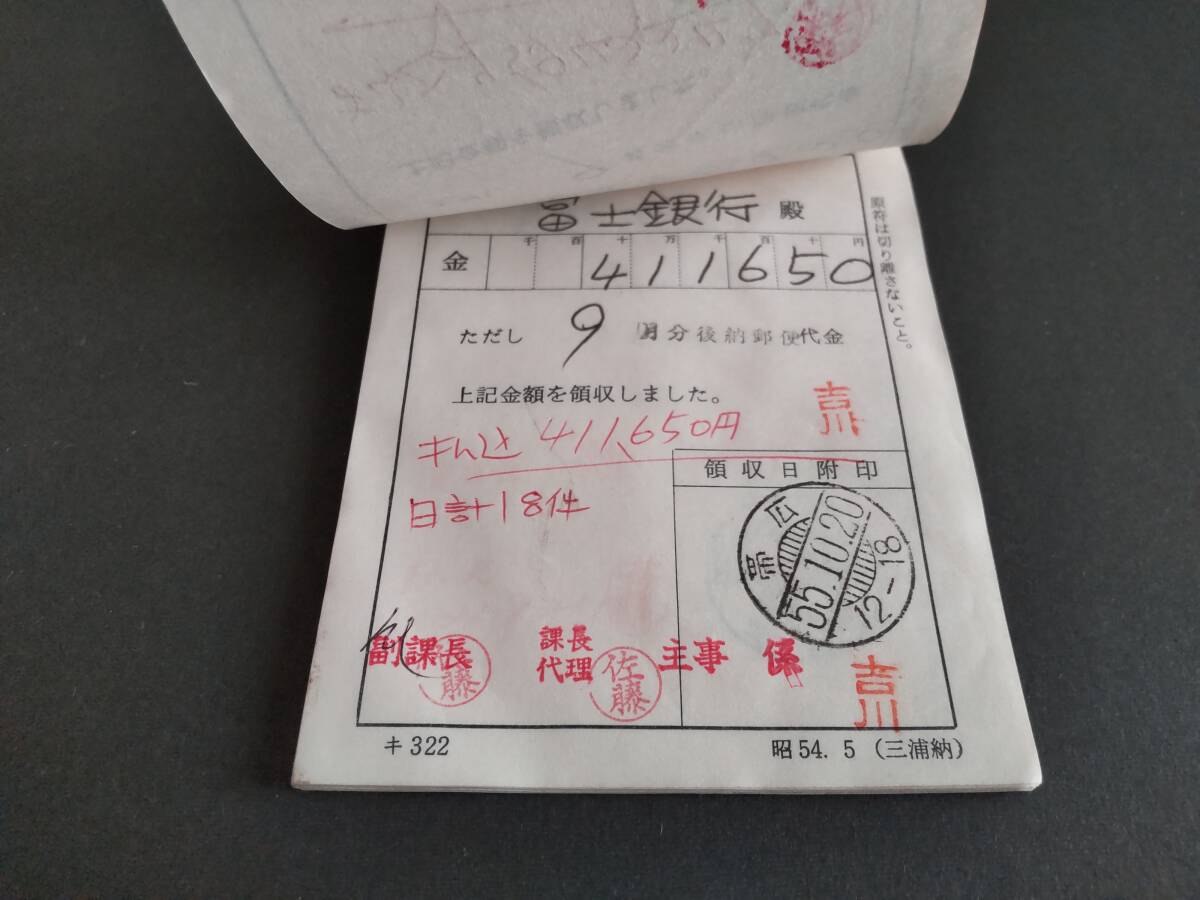 富士銀行 殿
千 百 十 万 千 百 十 円
金 411650
ただし 9 月分後納郵便代金
上記金額を領収しました。
吉川
411,650円
日計18件
領収日附印
帯広
55.10.20
12-18
副課長
藤
課長代理
佐藤
主事 係
吉川
キ322
昭54. 5 (三浦納)
原符は切り離さないこと。